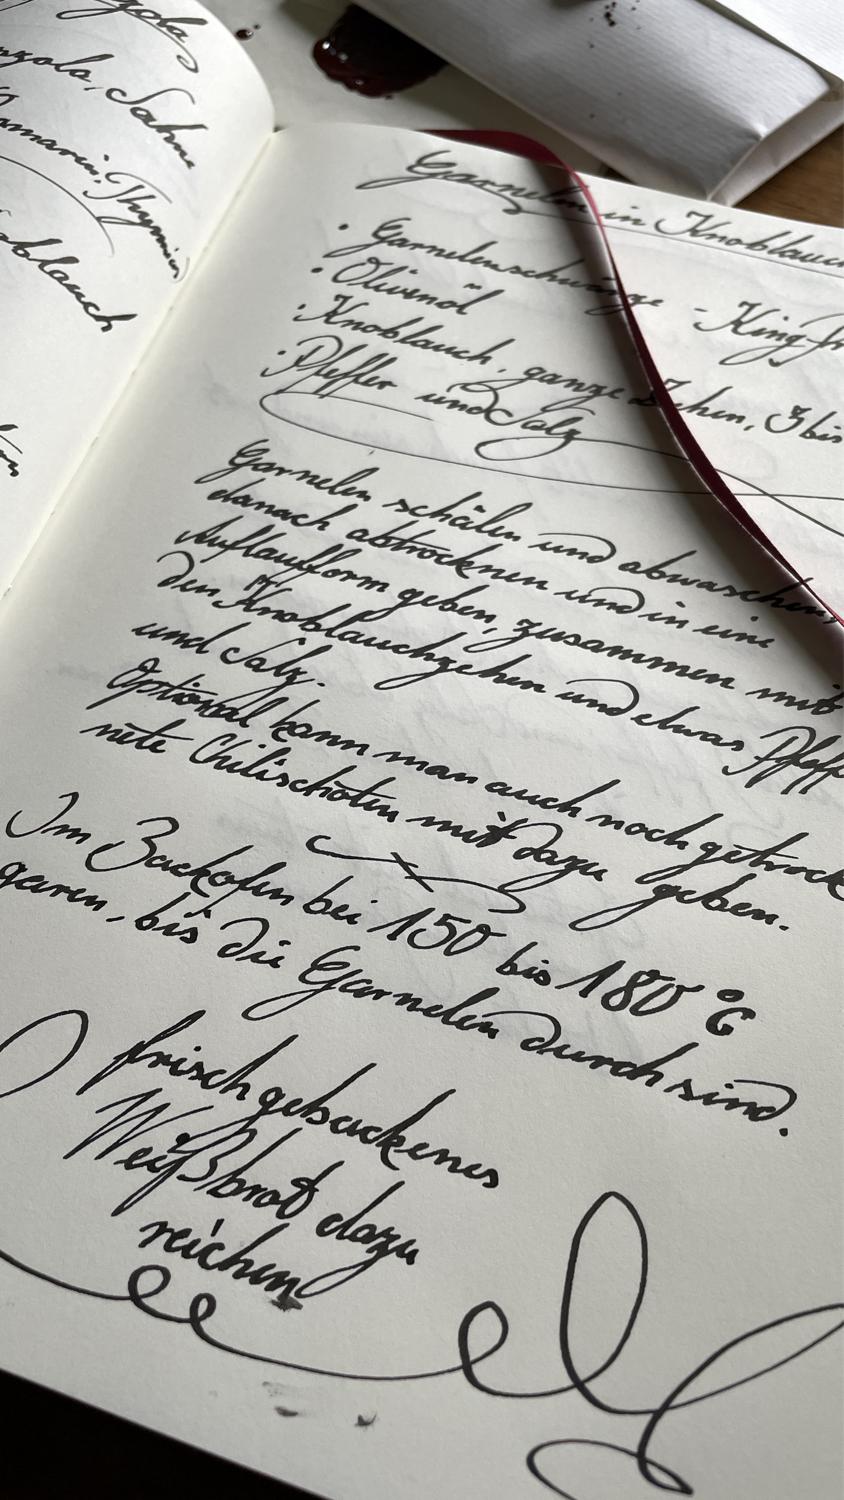 Sahne
Thymian
Garnelen in Knoblauch
· Garnelenschwänze - King
· Olivenöl
· Knoblauch, ganze Zehen, 3 bis
· Pfeffer und Salz
Garnelen schälen und abwaschen,
danach abtrocknen und in eine
Auflaufform geben, zusammen mit
den Knoblauchzehen und etwas Pfeffer
und Salz.
Optional kann man auch noch getrock
nete Chilischoten mit dazu geben.
Im Backofen bei 150 bis 180 °C
garen, bis die Garnelen durch sind.
frisch gebackenes
Weißbrot dazu
reichen